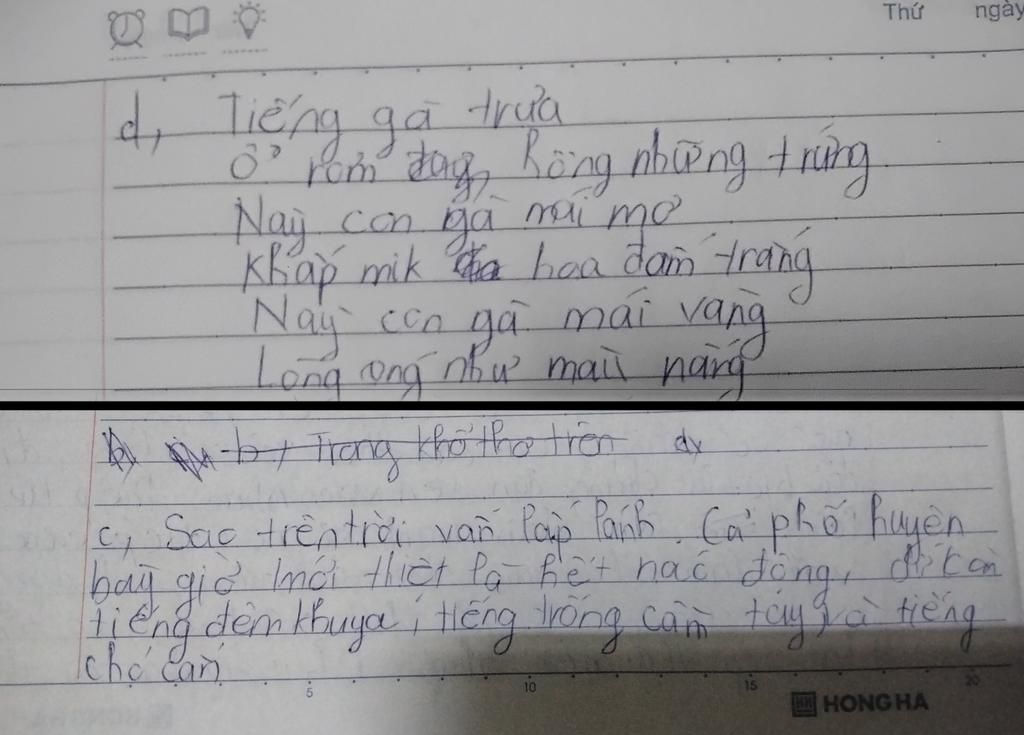 Thứ ngày
d, Tiếng gà trưa
Ổ rơm hồng những trứng
Này con gà mái mơ
Khắp mik hoa đốm trắng
Này con gà mái vàng
Lông óng như màu nắng
b, Trong khổ thơ trên
c, Sao trên trời vẫn lấp lánh. Cả phố huyện
bây giờ mới thiệt là hết náo động, chỉ còn
tiếng đêm khuya, tiếng trống cầm tay, và tiếng
chó cắn
5 10 15 20
HONG HA